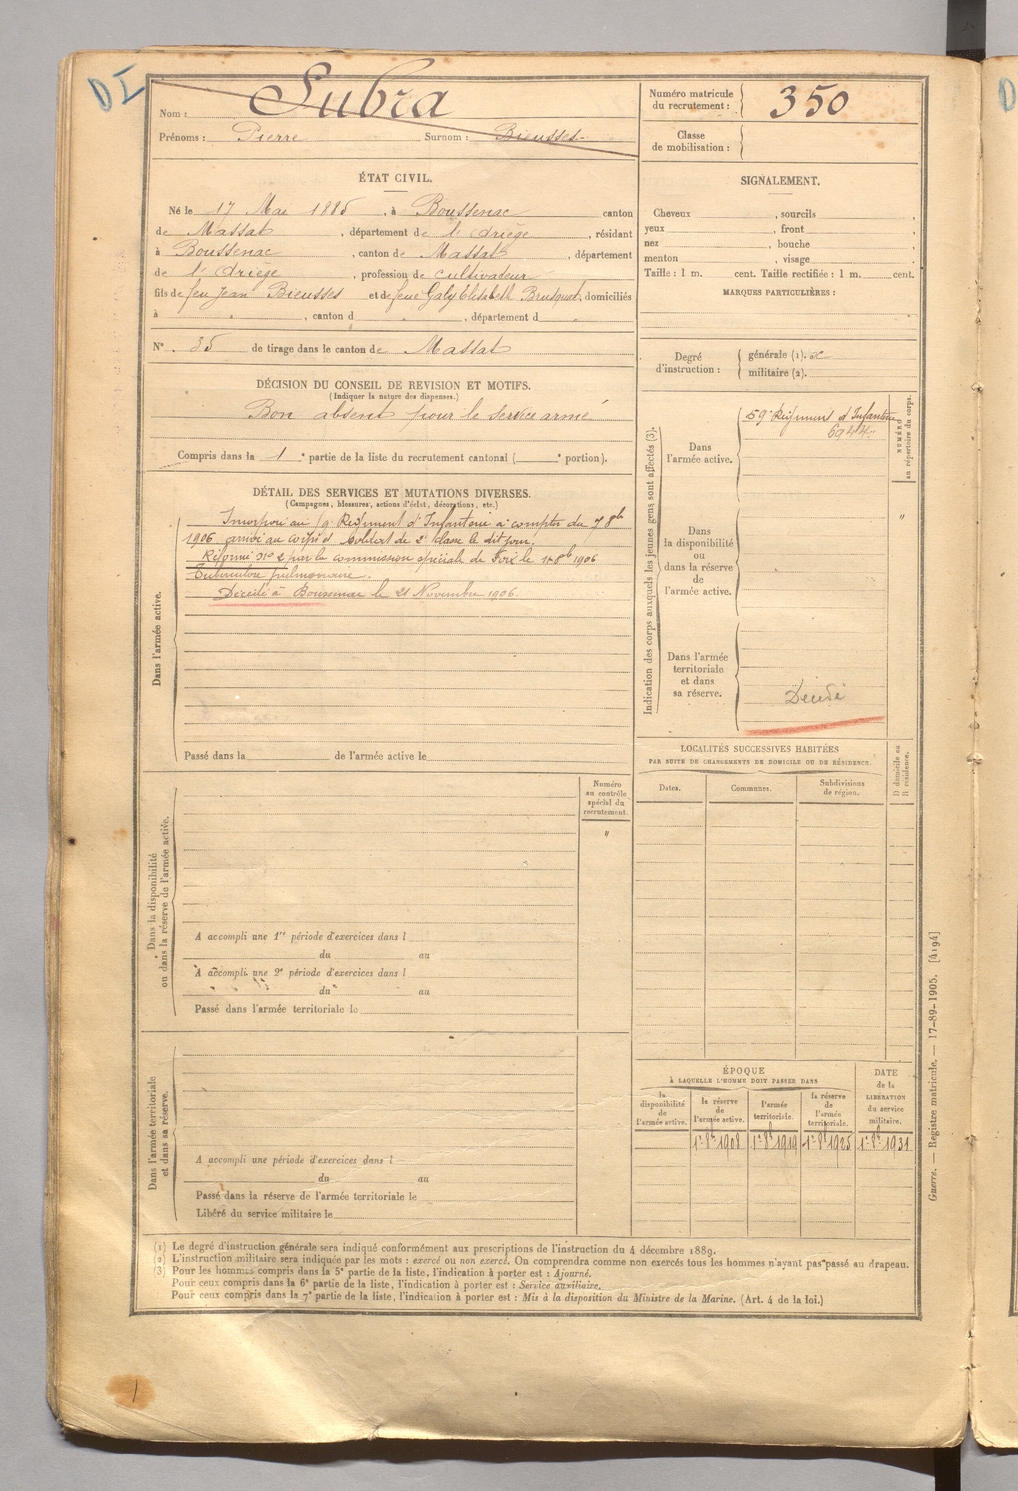 DI
Nom : Subra
Prénoms : Pierre Surnom : Bieusses
Numéro matricule du recrutement : 350
Classe de mobilisation :
ÉTAT CIVIL.
Né le 17 Mai 1885, à Boussenac canton
de Massat, département de l'Ariège, résidant
à Boussenac, canton de Massat, département
de l'Ariège, profession de cultivateur
fils de feu Jean Bieusses et de feue Galy Elisabeth Brusquet, domiciliés
à , canton d , département d
N° 35 de tirage dans le canton de Massat
DÉCISION DU CONSEIL DE REVISION ET MOTIFS.
(Indiquer la nature des dispenses.)
Bon absent pour le service armé
Compris dans la 1e partie de la liste du recrutement cantonal ( e portion).
DÉTAIL DES SERVICES ET MUTATIONS DIVERSES.
(Campagnes, blessures, actions d'éclat, décorations, etc.)
Incorporé au 59e Régiment d'Infanterie à compter du 7 8b
1906 arrivé au corps et soldat de 2e classe le dit jour.
Réformé N° 2 par la commission spéciale de Foix le 18b 1906
Tuberculose pulmonaire.
Décédé à Boussenac le 21 Novembre 1906.
Dans l'armée active.
Passé dans la de l'armée active le
Dans la disponibilité
ou dans la réserve de l'armée active.
Numéro
au contrôle
spécial du
recrutement.
"
A accompli une 1re période d'exercices dans l
du au
A accompli une 2e période d'exercices dans l
du au
Passé dans l'armée territoriale le
Dans l'armée territoriale
et dans sa réserve.
A accompli une période d'exercices dans l
du au
Passé dans la réserve de l'armée territoriale le
Libéré du service militaire le
SIGNALEMENT.
Cheveux , sourcils ,
yeux , front ,
nez , bouche ,
menton , visage ,
Taille : 1 m. cent. Taille rectifiée : 1 m. cent.
MARQUES PARTICULIÈRES :
Degré d'instruction : générale (1).
militaire (2).
Indication des corps auxquels les jeunes gens sont affectés (3).
NUMÉRO
au répertoire du corps.
Dans
l'armée active.
59e Régiment d'Infanterie
6944
Dans
la disponibilité
ou
dans la réserve
de
l'armée active.
"
Dans l'armée
territoriale
et dans
sa réserve.
Décédé
LOCALITÉS SUCCESSIVES HABITÉES
PAR SUITE DE CHANGEMENTS DE DOMICILE OU DE RÉSIDENCE.
Dates. Communes. Subdivisions
de région.
D domicile ou
R résidence.
ÉPOQUE
À LAQUELLE L'HOMME DOIT PASSER DANS
la
disponibilité
de
l'armée active.
la réserve
de
l'armée active.
l'armée
territoriale.
la réserve
de
l'armée
territoriale.
DATE
de la
LIBÉRATION
du service
militaire.
1er 8b 1908 1er 8b 1919 1er 8b 1925 1er 8b 1931
Guerre. — Registre matricule. — 17-89-1905. [4194]
(1) Le degré d'instruction générale sera indiqué conformément aux prescriptions de l'instruction du 4 décembre 1889.
(2) L'instruction militaire sera indiquée par les mots : exercé ou non exercé. On comprendra comme non exercés tous les hommes n'ayant pas passé au drapeau.
(3) Pour les hommes compris dans la 5e partie de la liste, l'indication à porter est : Ajourné.
Pour ceux compris dans la 6e partie de la liste, l'indication à porter est : Service auxiliaire.
Pour ceux compris dans la 7e partie de la liste, l'indication à porter est : Mis à la disposition du Ministre de la Marine. (Art. 4 de la loi.)